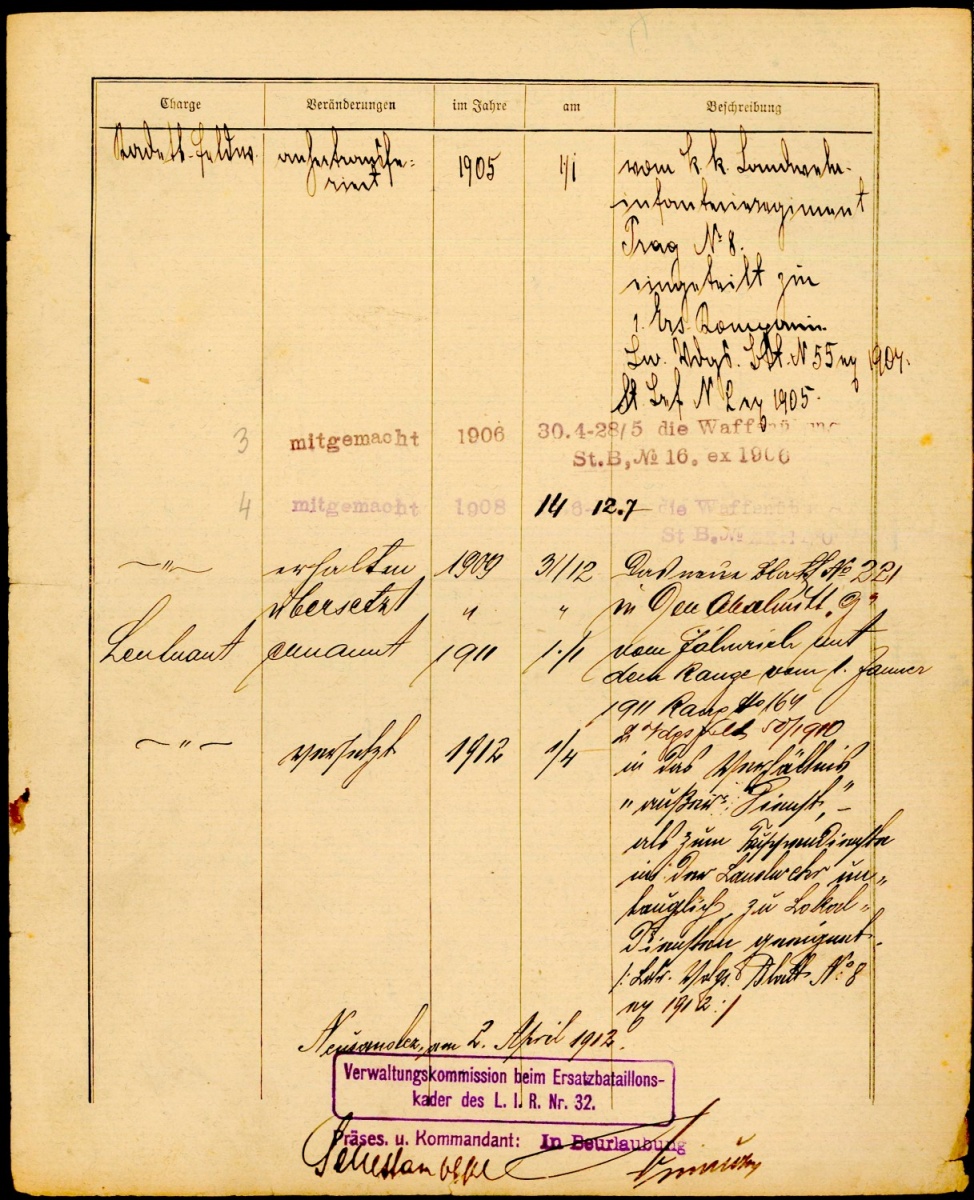 Charge Veränderungen im Jahre am Beschreibung
Kadett-Feldw. anhertransfe- 1905 1/1 vom k. k. Landwehr-
riert infanterieregiment
Prag No 8.
eingeteilt zur
1. Ers. Kompanie.
Lw. Vdgs. Blt. N 55 ex 1904.
N 2 ex 1905.
3 mitgemacht 1906 30.4-28/5 die Waffenübung
St.B, № 16. ex 1906
4 mitgemacht 1908 14 12.7 die
St B, №
-"- erhalten 1909 31/12 Das neue Blatt No 221
übersetzt " " in den
Leutnant ernannt 1911 1./1 vom Fähnrich mit
dem Range vom 1. Jänner
1911 Rang No 164
50/1910
-"- versetzt 1912 1/4 in das Verhältnis
"außer Dienst,"
als zum Truppendienste
in der Landwehr un-
tauglich, zu Lokal-
Diensten geeignet.
/: Ldw. Vdgs. Blatt No 8
ex 1912 :/
Neusandez, am 2. April 1912.
Verwaltungskommission beim Ersatzbataillons-
kader des L. I. R. Nr. 32.
Präses. u. Kommandant: In Beurlaubung